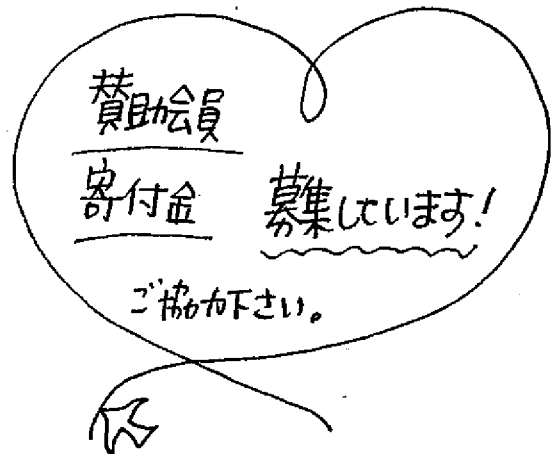 賛助会員
寄付金 募集しています!
ご協力下さい。